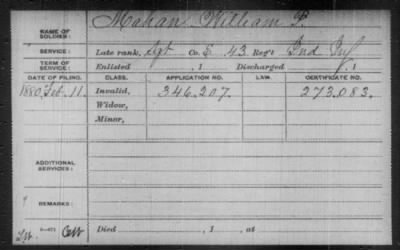 NAME OF SOLDIER: Mahan William P.
SERVICE: Late rank, Sgt Co. E, 43 Reg't Ind Inf
TERM OF SERVICE: Enlisted , 1 Discharged , 1
DATE OF FILING. CLASS. APPLICATION NO. LAW. CERTIFICATE NO.
1880, Feb. 11. Invalid, 346.207. 273.083.
Widow,
Minor,
ADDITIONAL SERVICES:
REMARKS:
Died , 1 , at